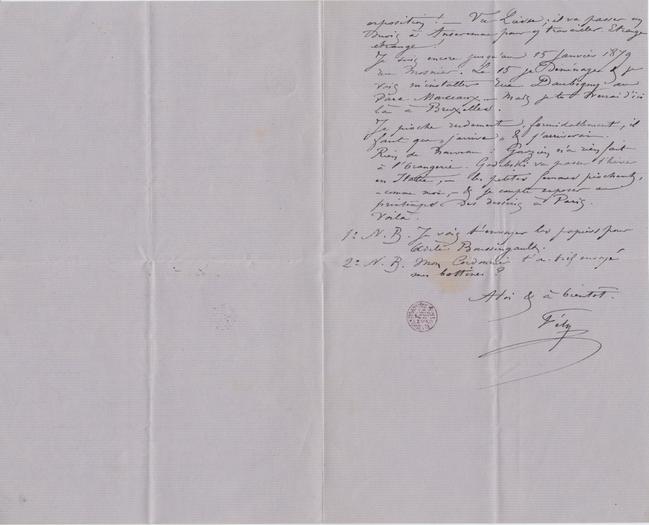 exposition! — Vu Liesse; il va passer
Paris à Anseremme pour y travailler. Etrange
étrange!
Je suis encore jusqu'au 15 Janvier 1879
rue Mosnier. Le 15 je déménage & je
vais m'installer Rue Daubigny au
Parc Monceaux — Mais je te verrai d'ici
là à Bruxelles.
Je pioche rudement, formidablement, il
faut que j'arrive & j'arriverai.
Rien de nouveau: n'a rien fait
à l'Orangerie. va passer l'hiver
en Italie, — les petites femmes piochent,
— comme moi, — & je compte exposer au
printemps des dessins à Paris.
Voilà.
1: N.B. Je vais t'envoyer les papiers pour
Boussingault.
2: N.B. Mon Cordonnier t'a-t-il envoyé
mes bottines?
A toi & à bientôt.
Fély